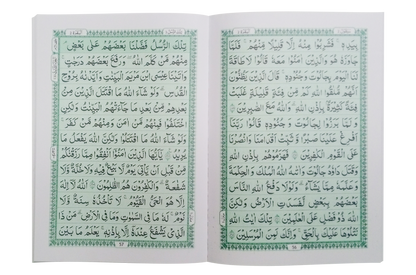 بِيَدِهٖ ۚ فَشَرِبُوْا مِنْهُ اِلَّا قَلِيْلًا مِّنْهُمْ ؕ فَلَمَّا
جَاوَزَهٗ هُوَ وَالَّذِيْنَ اٰمَنُوْا مَعَهٗ ۙ قَالُوْا لَا طَاقَةَ
لَنَا الْيَوْمَ بِجَالُوْتَ وَجُنُوْدِهٖ ؕ قَالَ الَّذِيْنَ يَظُنُّوْنَ
اَنَّهُمْ مُّلٰقُوا اللّٰهِ ۙ كَمْ مِّنْ فِئَةٍ قَلِيْلَةٍ غَلَبَتْ
فِئَةً كَثِيْرَةً ۢ بِاِذْنِ اللّٰهِ ؕ وَاللّٰهُ مَعَ الصّٰبِرِيْنَ
وَلَمَّا بَرَزُوْا لِجَالُوْتَ وَجُنُوْدِهٖ قَالُوْا رَبَّنَاۤ
اَفْرِغْ عَلَيْنَا صَبْرًا وَّثَبِّتْ اَقْدَامَنَا وَانْصُرْنَا
عَلَى الْقَوْمِ الْكٰفِرِيْنَ ؕ فَهَزَمُوْهُمْ بِاِذْنِ اللّٰهِ ۙ
وَقَتَلَ دَاوٗدُ جَالُوْتَ وَاٰتٰىهُ اللّٰهُ الْمُلْكَ وَالْحِكْمَةَ
وَعَلَّمَهٗ مِمَّا يَشَآءُ ؕ وَلَوْلَا دَفْعُ اللّٰهِ النَّاسَ
بَعْضَهُمْ بِبَعْضٍ لَّفَسَدَتِ الْاَرْضُ وَلٰكِنَّ
اللّٰهَ ذُوْ فَضْلٍ عَلَى الْعٰلَمِيْنَ تِلْكَ اٰيٰتُ اللّٰهِ
نَتْلُوْهَا عَلَيْكَ بِالْحَقِّ ؕ وَاِنَّكَ لَمِنَ الْمُرْسَلِيْنَ
تِلْكَ الرُّسُلُ فَضَّلْنَا بَعْضَهُمْ عَلٰى بَعْضٍ ۘ
مِنْهُمْ مَّنْ كَلَّمَ اللّٰهُ وَرَفَعَ بَعْضَهُمْ دَرَجٰتٍ ؕ
وَاٰتَيْنَا عِيْسَى ابْنَ مَرْيَمَ الْبَيِّنٰتِ وَاَيَّدْنٰهُ بِرُوْحِ
الْقُدُسِ ؕ وَلَوْ شَآءَ اللّٰهُ مَا اقْتَتَلَ الَّذِيْنَ مِنْۢ
بَعْدِهِمْ مِّنْۢ بَعْدِ مَا جَآءَتْهُمُ الْبَيِّنٰتُ وَلٰكِنِ
اخْتَلَفُوْا فَمِنْهُمْ مَّنْ اٰمَنَ وَمِنْهُمْ مَّنْ كَفَرَ ؕ
وَلَوْ شَآءَ اللّٰهُ مَا اقْتَتَلُوْا ۟ وَلٰكِنَّ اللّٰهَ يَفْعَلُ مَا
يُرِيْدُ يٰۤاَيُّهَا الَّذِيْنَ اٰمَنُوْۤا اَنْفِقُوْا مِمَّا رَزَقْنٰكُمْ
مِّنْ قَبْلِ اَنْ يَّاْتِيَ يَوْمٌ لَّا بَيْعٌ فِيْهِ وَلَا خُلَّةٌ وَّلَا
شَفَاعَةٌ ؕ وَالْكٰفِرُوْنَ هُمُ الظّٰلِمُوْنَ اَللّٰهُ لَاۤ اِلٰهَ اِلَّا
هُوَ ۚ اَلْحَيُّ الْقَيُّوْمُ ۬ۚ لَا تَاْخُذُهٗ سِنَةٌ وَّلَا
نَوْمٌ ؕ لَهٗ مَا فِي السَّمٰوٰتِ وَمَا فِي الْاَرْضِ ؕ مَنْ ذَا
الَّذِيْ يَشْفَعُ عِنْدَهٗۤ اِلَّا بِاِذْنِهٖ ؕ يَعْلَمُ مَا بَيْنَ